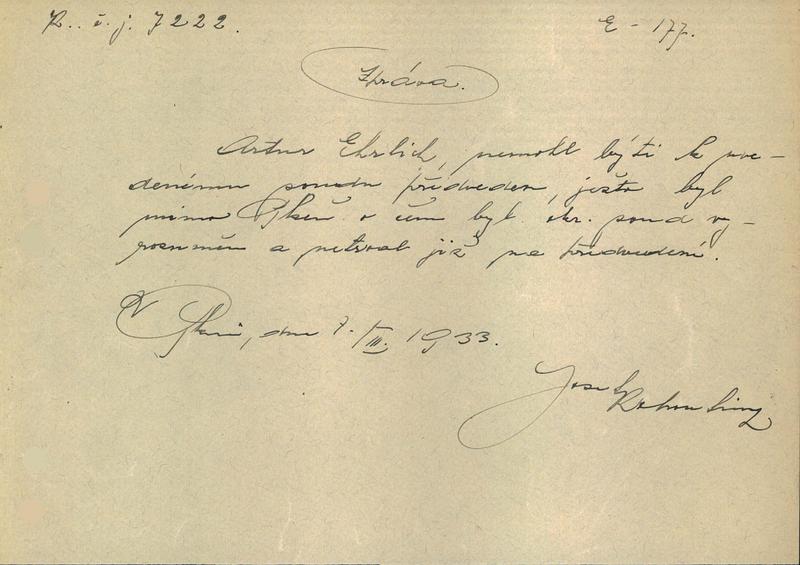 K. č. j. 7222. E - 177.
Zpráva.
Artur Ehrlich, nemohl býti k uve-
denému soudu předveden, ježto byl
mimo Plzeň o čem byl okr. soud vy-
rozuměn a netrval již na předvedení.
V Plzni, dne 7./III. 1933.
Josef